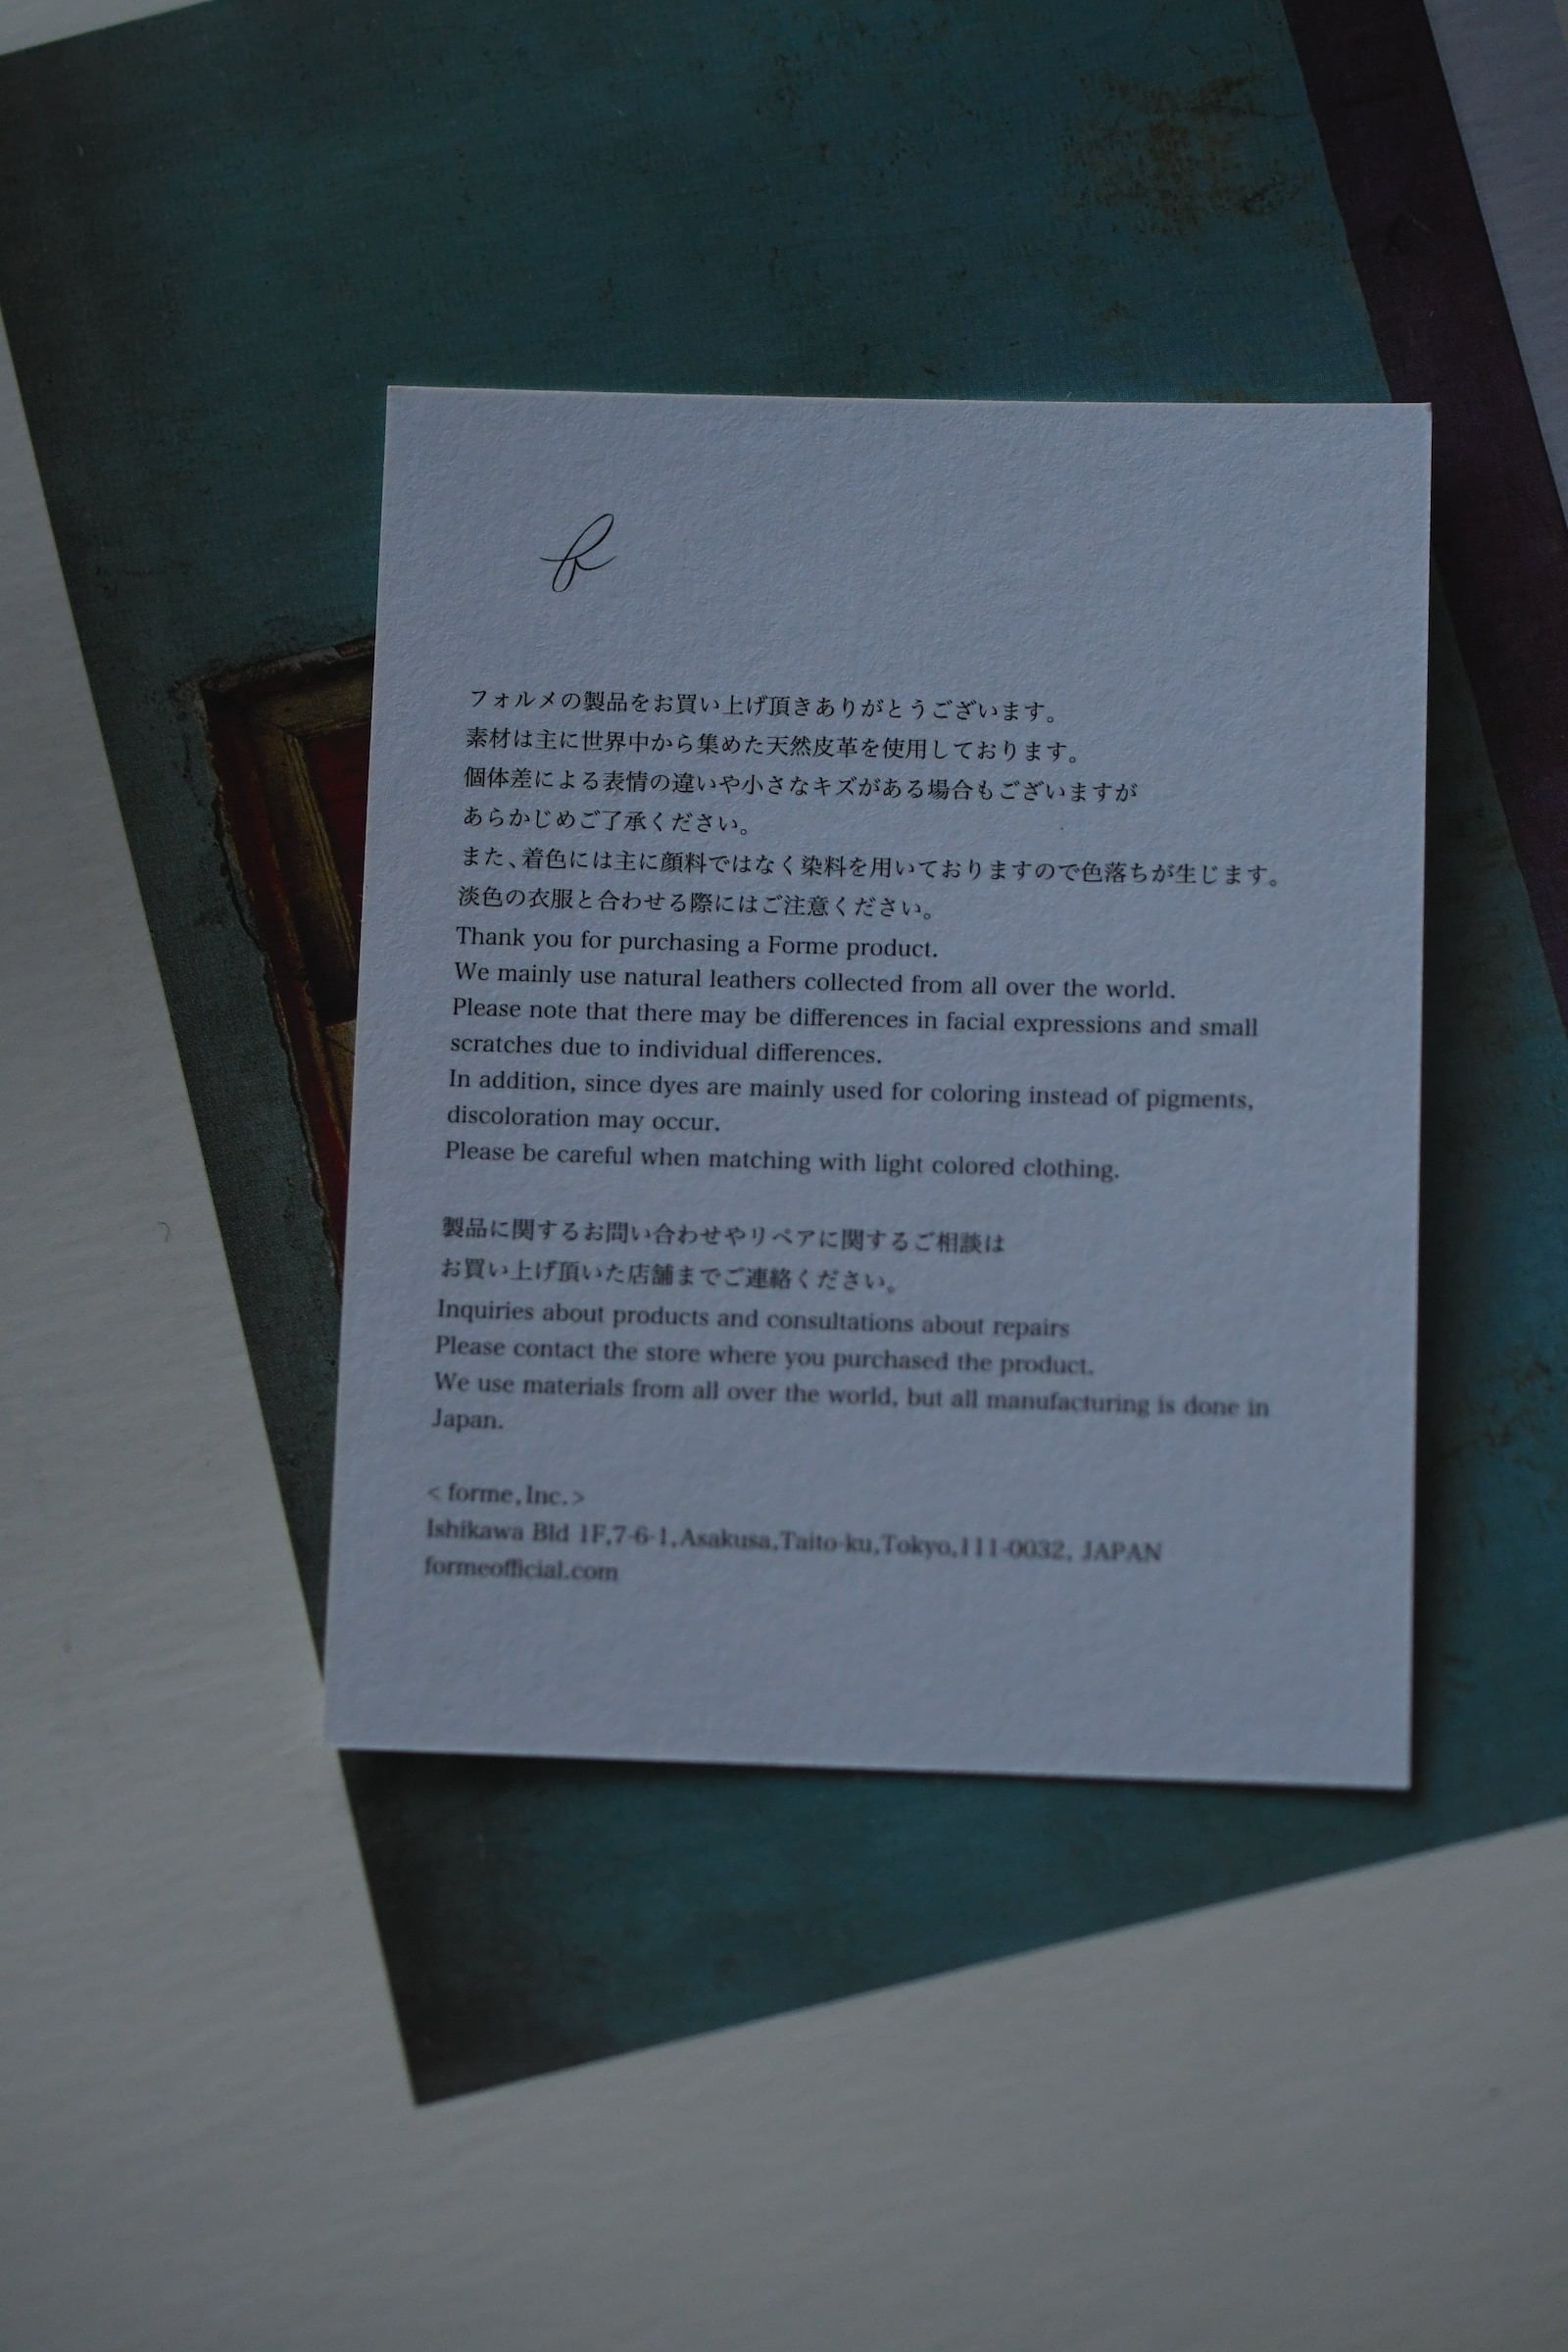 f
フォルメの製品をお買い上げ頂きありがとうございます。
素材は主に世界中から集めた天然皮革を使用しております。
個体差による表情の違いや小さなキズがある場合もございますが
あらかじめご了承ください。
また、着色には主に顔料ではなく染料を用いておりますので色落ちが生じます。
淡色の衣服と合わせる際にはご注意ください。
Thank you for purchasing a Forme product.
We mainly use natural leathers collected from all over the world.
Please note that there may be differences in facial expressions and small
scratches due to individual differences.
In addition, since dyes are mainly used for coloring instead of pigments,
discoloration may occur.
Please be careful when matching with light colored clothing.
製品に関するお問い合わせやリペアに関するご相談は
お買い上げ頂いた店舗までご連絡ください。
Inquiries about products and consultations about repairs
Please contact the store where you purchased the product.
We use materials from all over the world, but all manufacturing is done in
Japan.
< forme, Inc. >
Ishikawa Bld 1F,7-6-1,Asakusa,Taito-ku,Tokyo,111-0032, JAPAN
formeofficial.com